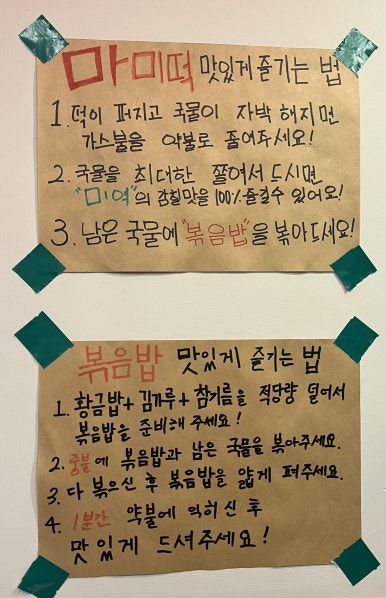 마미떡 맛있게 즐기는 법
1. 떡이 퍼지고 국물이 자박 해지면
가스불을 약불로 줄여주세요!
2. 국물을 최대한 쫄여서 드시면
"미역"의 감칠맛을 100% 즐길수 있어요!
3. 남은 국물에 "볶음밥"을 볶아드세요!
볶음밥 맛있게 즐기는 법
1. 황금밥+김가루+참기름을 적당량 덜어서
볶음밥을 준비해 주세요!
2. 중불에 볶음밥과 남은 국물을 볶아주세요.
3. 다 볶으신 후 볶음밥을 얇게 펴주세요.
4. 1분간 약불에 익히신 후
맛있게 드셔주세요!